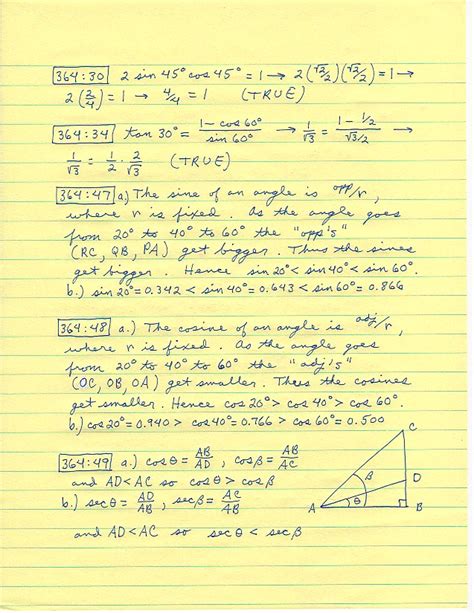 364:30 2 sin 45° cos 45° = 1 → 2(√2/2)(√2/2) = 1 →
2(2/4) = 1 → 4/4 = 1 (TRUE)
364:34 tan 30° = (1 - cos 60°)/(sin 60°) → 1/√3 = (1 - 1/2)/(√3/2) →
1/√3 = 1/2 · 2/√3 (TRUE)
364:47 a.) The sine of an angle is opp/r,
where r is fixed. As the angle goes
from 20° to 40° to 60° the "opp's"
(RC, QB, PA) get bigger. Thus the sines
get bigger. Hence sin 20° < sin 40° < sin 60°.
b.) sin 20° = 0.342 < sin 40° = 0.643 < sin 60° = 0.866
364:48 a.) The cosine of an angle is adj/r,
where r is fixed. As the angle goes
from 20° to 40° to 60° the "adj's"
(OC, OB, OA) get smaller. Thus the cosines
get smaller. Hence cos 20° > cos 40° > cos 60°.
b.) cos 20° = 0.940 > cos 40° = 0.766 > cos 60° = 0.500
364:49 a.) cos θ = AB/AD, cos β = AB/AC
and AD < AC so cos θ > cos β
b.) sec θ = AD/AB, sec β = AC/AB
and AD < AC so sec θ < sec β
C
β
D
θ
A
B